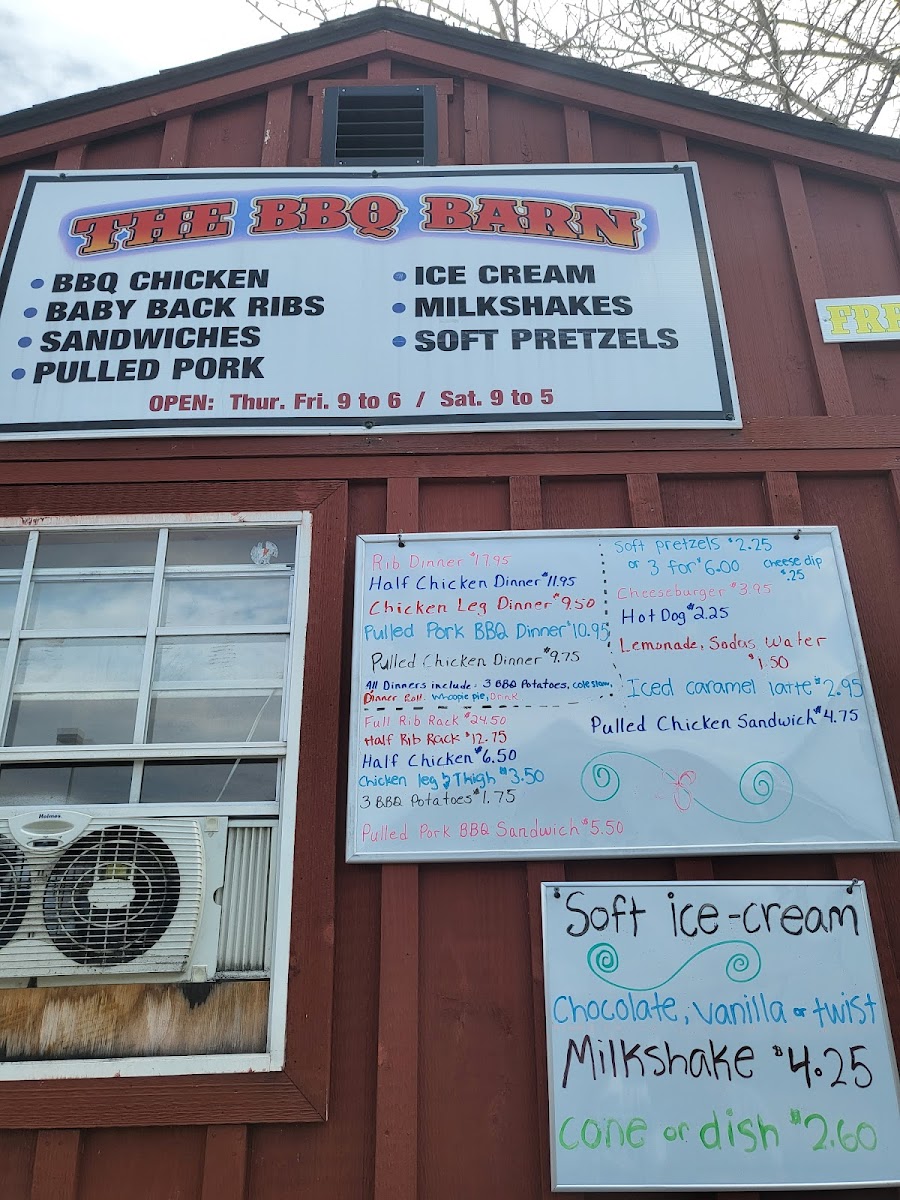 THE BBQ BARN
• BBQ CHICKEN
• BABY BACK RIBS
• SANDWICHES
• PULLED PORK
• ICE CREAM
• MILKSHAKES
• SOFT PRETZELS
OPEN: Thur. Fri. 9 to 6 / Sat. 9 to 5
FRE
Rib Dinner $17.95
Half Chicken Dinner $11.95
Chicken Leg Dinner $9.50
Pulled Pork BBQ Dinner $10.95
Pulled Chicken Dinner $9.75
All Dinners include: 3 BBQ Potatoes, coleslaw,
Dinner Roll, Whoopie pie, Drink
Full Rib Rack $24.50
Half Rib Rack $12.75
Half Chicken $6.50
Chicken leg & Thigh $3.50
3 BBQ Potatoes $1.75
Pulled Pork BBQ Sandwich $5.50
Soft pretzels $2.25
or 3 for $6.00
cheese dip
$.25
Cheeseburger $3.95
Hot Dog $2.25
Lemonade, Sodas, Water
$1.50
Iced caramel latte $2.95
Pulled Chicken Sandwich $4.75
Holmes
Soft ice-cream
Chocolate, vanilla or twist
Milkshake $4.25
cone or dish $2.60